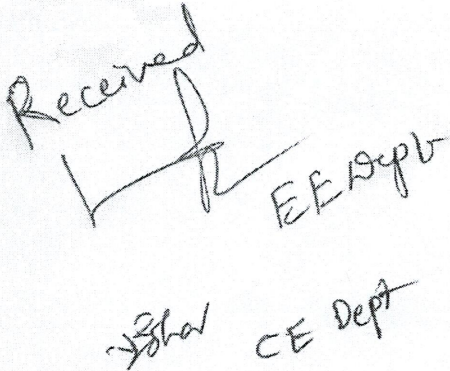 Received
EE Dept
CE Dept